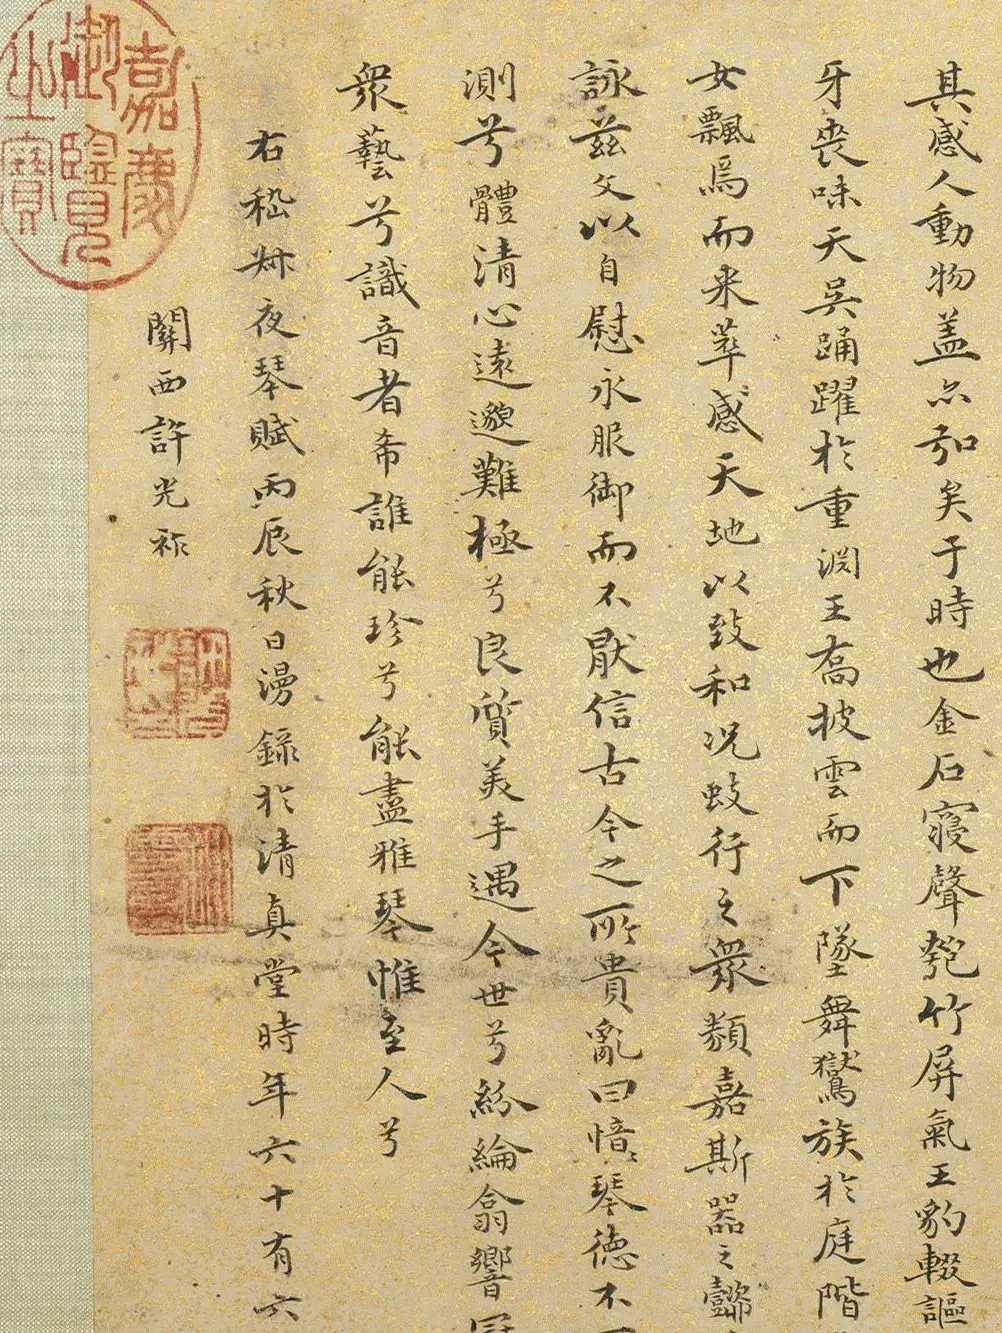 其感人動物盖亦弘矣于時也金石寢聲匏竹屏氣王豹輟謳
牙喪味天吳踊躍於重淵王喬披雲而下墜舞鸑族於庭階
女飄焉而来萃感天地以致和況蚑行之衆類嘉斯器之懿
詠茲文以自慰永服御而不厭信古今之所貴亂曰愔〻琴德不
測兮體清心遠邈難極兮良質美手遇今世兮紛綸翕響冠
衆藝兮識音者希誰能珍兮能盡雅琴惟至人兮
右嵇叔夜琴賦丙辰秋日漫錄於清真堂時年六十有六
關西許光祚
嘉慶御覽之寶